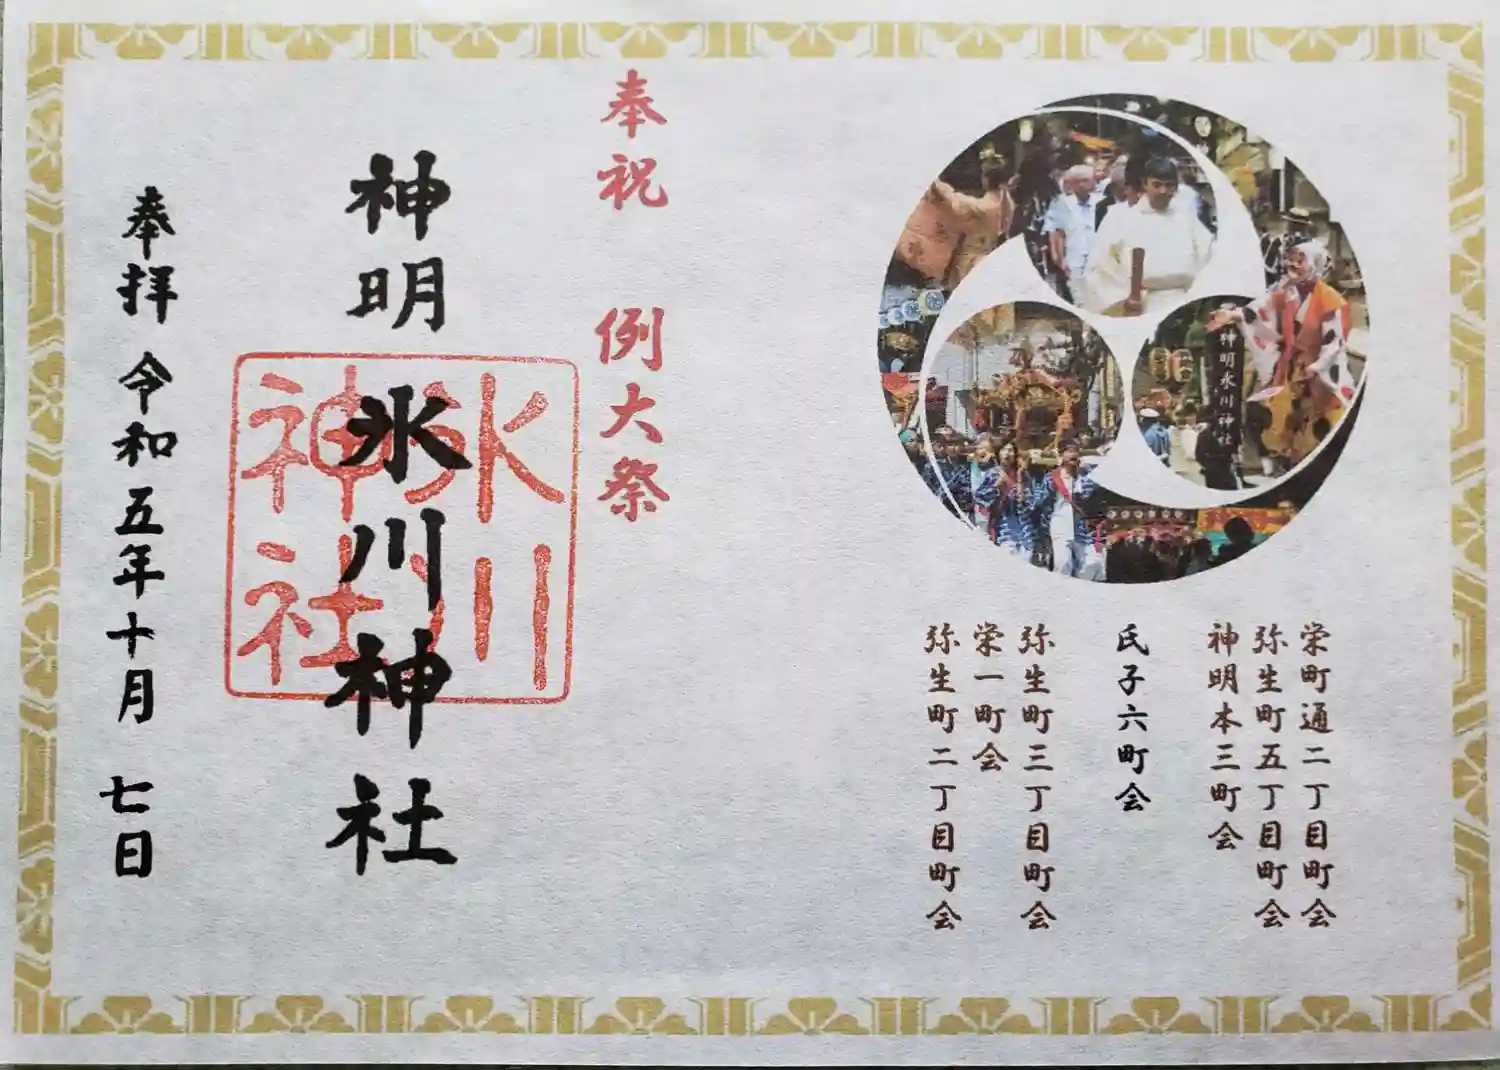 神明氷川神社
栄町通二丁目町会
弥生町五丁目町会
神明本三町会
氏子六町会
弥生町三丁目町会
栄一町会
弥生町二丁目町会
奉祝 例大祭
神明氷川神社
氷川
神社
奉拝 令和五年十月 七日